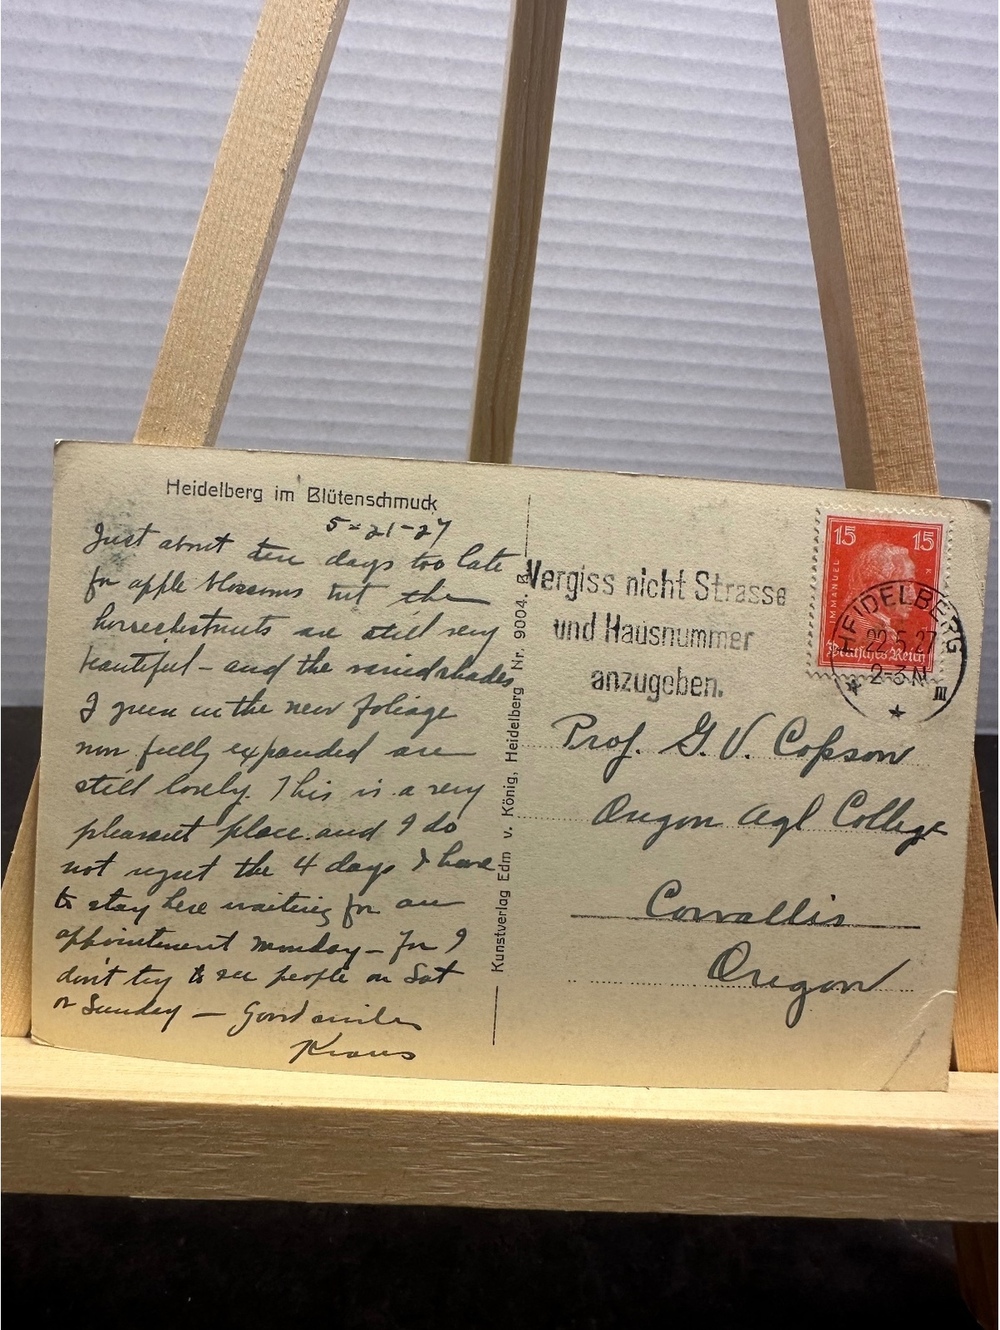 Heidelberg im Blütenschmuck
5-21-27
Just about ten days too late
for apple blossoms but the
horsechestnuts are still very
beautiful - and the varied shades
of green in the new foliage
now fully expanded are
still lovely. This is a very
pleasant place and I do
not regret the 4 days I have
to stay here waiting for an
appointment Monday - for I
don't try to see people on Sat
or Sunday -
Kraus
Kunstverlag Edm v. König, Heidelberg Nr. 9004. B.
Vergiss nicht Strasse
und Hausnummer
anzugeben.
15 15
IMMANUEL K
Deutsches Reich
HEIDELBERG
22.5.27
2-3 N
III
Prof. G. V. Copson
Oregon Agl College
Corvallis
Oregon